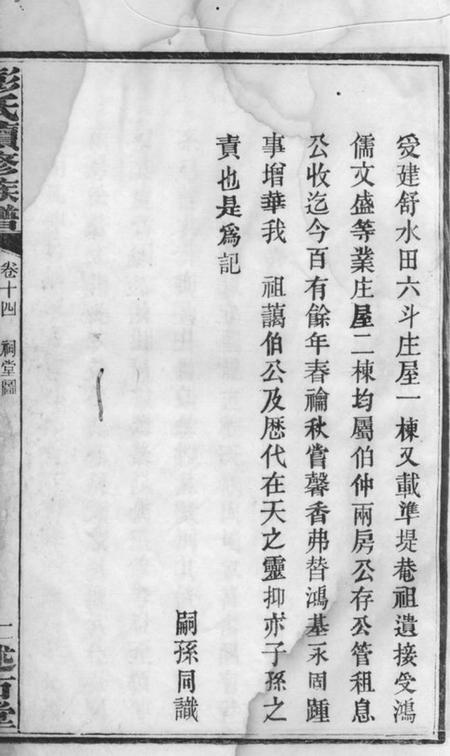 受建舒水田六斗庄屋一棟又載準堤菴祖遺接受鴻
儒文盛等業庄屋二棟均屬伯仲兩房公存公管租息
公收迄今百有餘年春禴秋嘗馨香弗替鴻基永固踵
事增華我　祖藹伯公及歷代在天之靈抑亦子孫之
責也是為記
嗣孫同識
彭氏續修族譜
卷十四　祠堂圖
述古堂